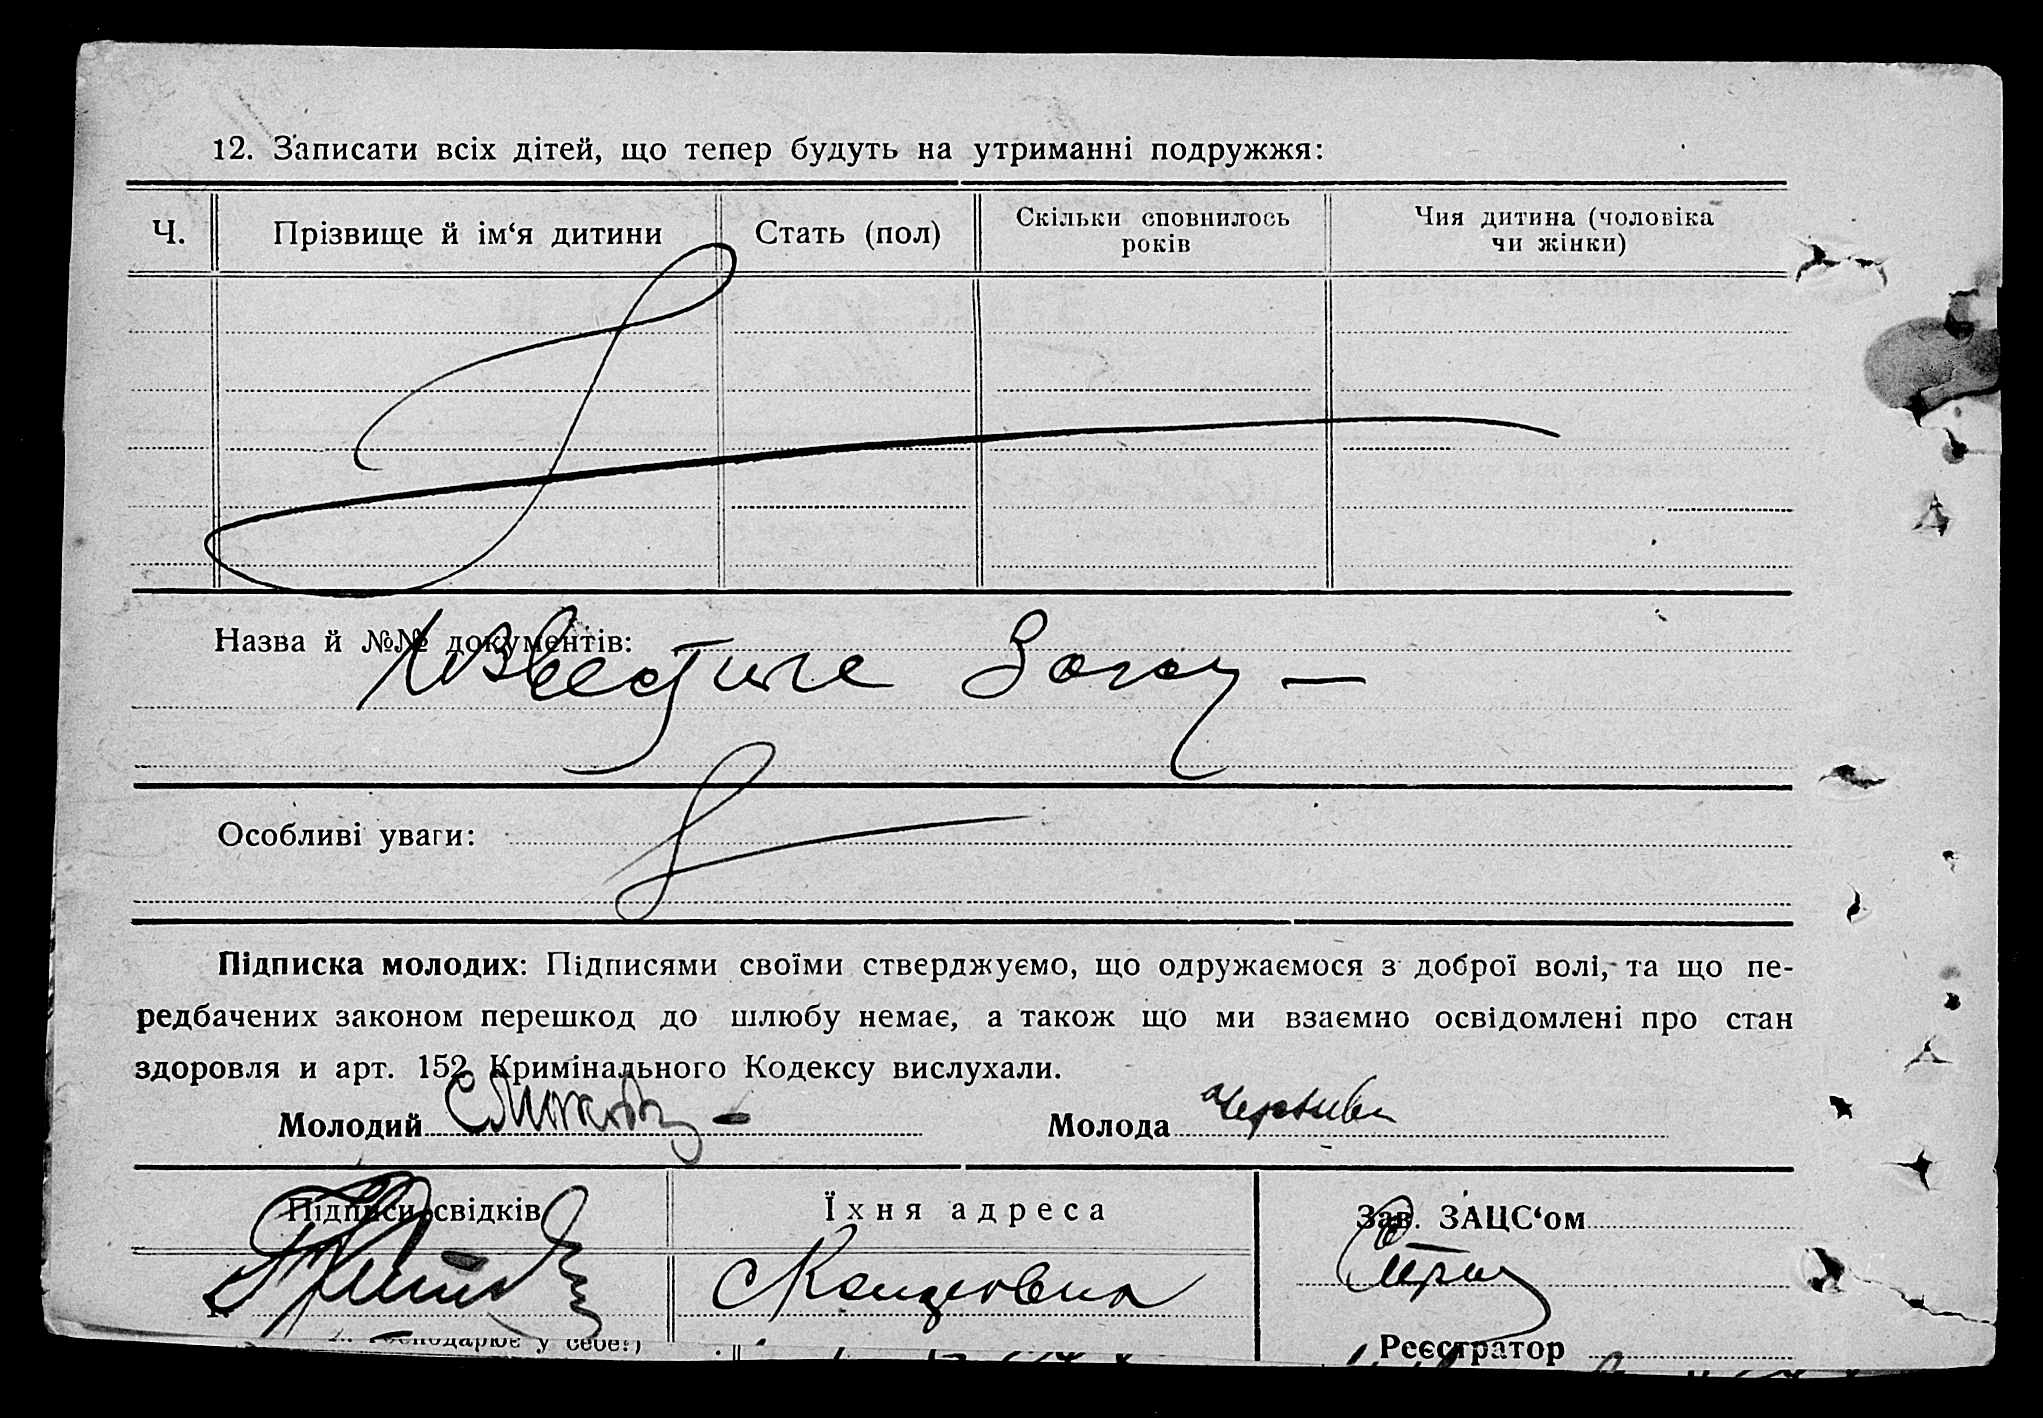 12. Записати всіх дітей, що тепер будуть на утриманні подружжя:
Ч.
Прізвище й ім‘я дитини
Стать (пол)
Скільки сповнилось
років
Чия дитина (чоловіка
чи жінки)
Назва й №№ документів:
Известие Загсу —
Особливі уваги:
Підписка молодих: Підписями своїми стверджуємо, що одружаємося з доброї волі, та що пе-
редбачених законом перешкод до шлюбу немає, а також що ми взаємно освідомлені про стан
здоровля и арт. 152 Кримінального Кодексу вислухали.
Молодий
Молода
Підписи свідків
Їхня адреса
Зав. ЗАЦС‘ом
с
Реєстратор
господарює у себе:)